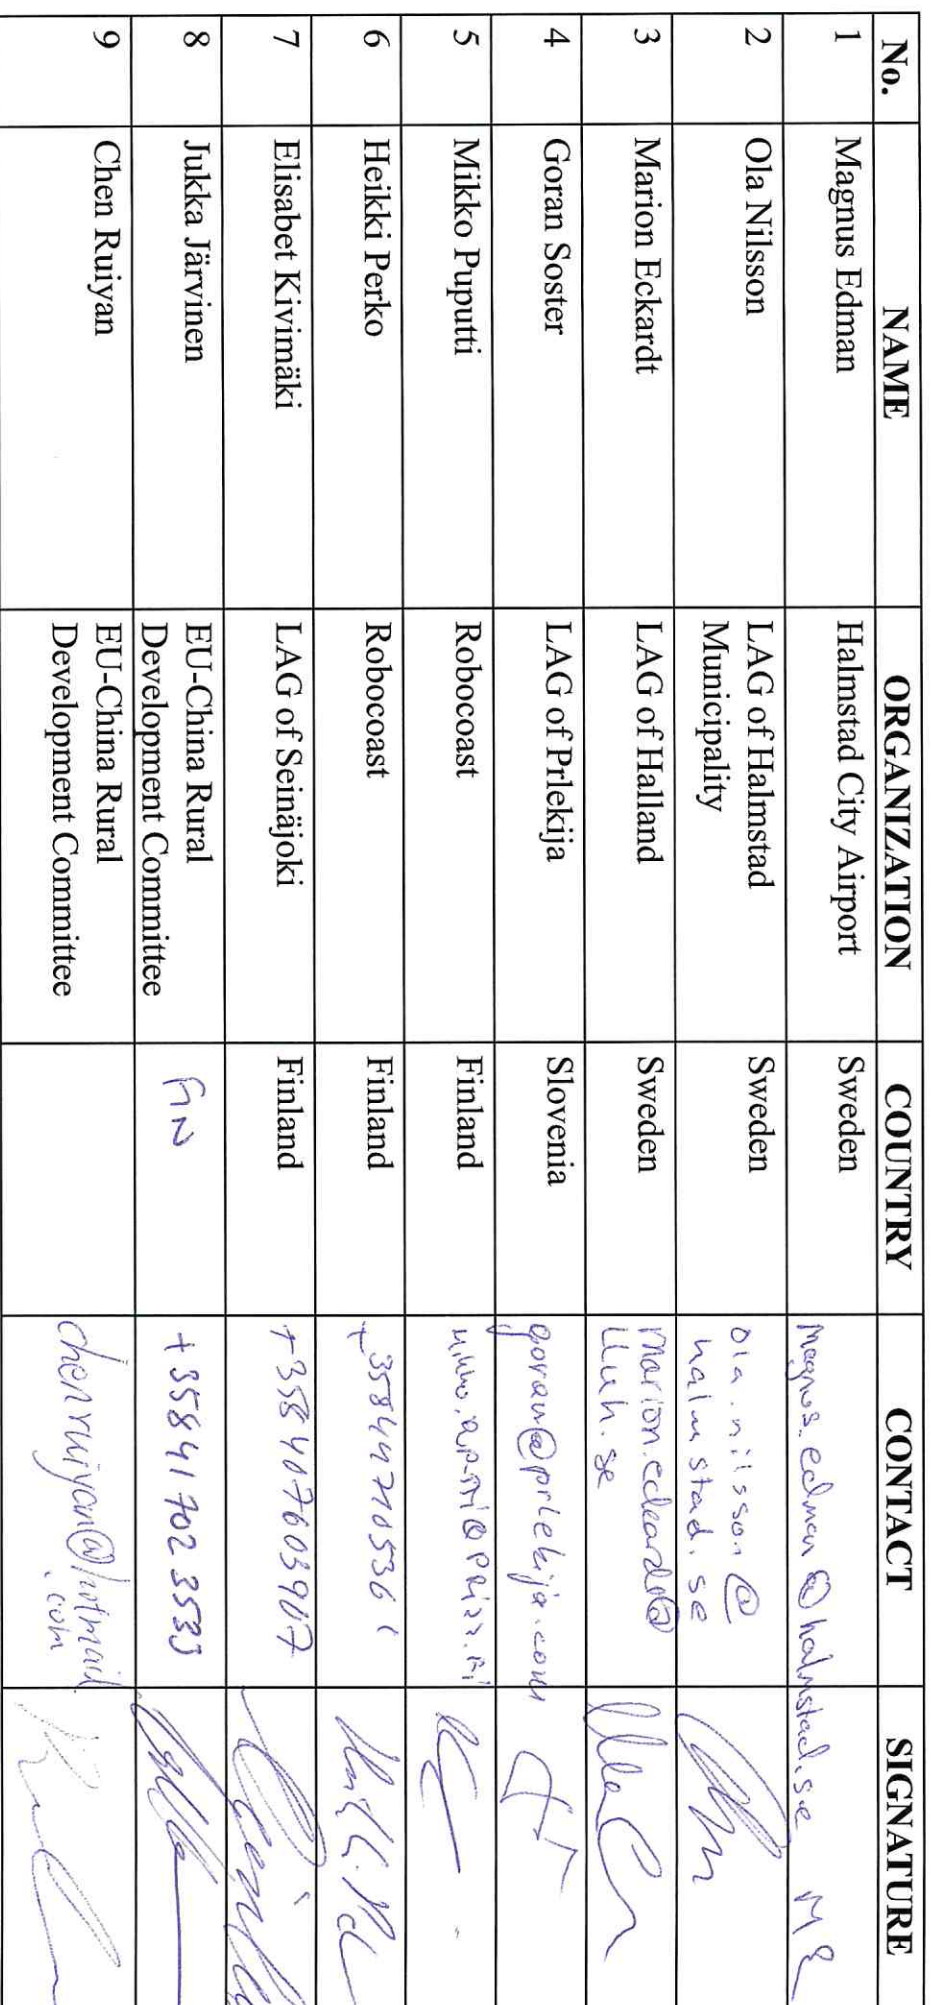 No. NAME ORGANIZATION COUNTRY CONTACT SIGNATURE
1 Magnus Edman Halmstad City Airport Sweden magnus.edman@halmstad.se ME
2 Ola Nilsson LAG of Halmstad Sweden ola.nilsson@
Municipality halmstad.se
3 Marion Eckardt LAG of Halland Sweden marion.eckardt@
lluh.se
4 Goran Soster LAG of Prlekija Slovenia goran@prlekija.com
5 Mikko Puputti Robocoast Finland
6 Heikki Perko Robocoast Finland
7 Elisabet Kivimäki LAG of Seinäjoki Finland +358407603907
8 Jukka Järvinen EU-China Rural FIN
Development Committee
9 Chen Ruiyan EU-China Rural chenruiyan@hotmail
Development Committee .com